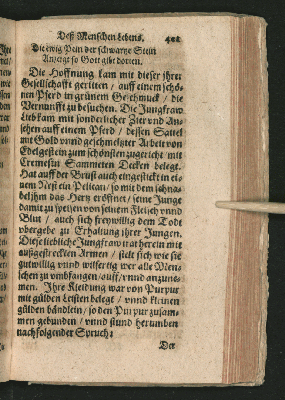 Deß Menschen Lebens. 421
Die ewig Pein der schwartze Stein
Anzeigt so Gott gibt dorten.
Die Hoffnung kam mit dieser jhrer
Gesellschafft geritten / auff einem schö-
nen Pferd in grünem Geschmuck / die
Vernunfft zu besuchen. Die Jungfraw
Lieb kam mit sonderlicher Zier vnd An-
sehen auff einem Pferd / dessen Sattel
mit Gold vnnd geschmeltzter Arbeit von
Edelgestein zum schönsten zugericht mit
Cremesin Sammeten Decken belegt.
Hat auff der Brust auch eingestickt in ei-
nem Nest ein Pelican / so mit dem schna-
bel jhm das Hertz eröffnet / seine Junge
damit zu speisen von seinem Fleisch vnnd
Blut / auch sich freywillig dem Todt
vbergebe zu Erhaltung jhrer Jungen.
Diese liebliche Jungfraw trat herein mit
außgestreckten Armen / stelt sich wie sie
gutwillig vnnd willfertig wer alle Men-
schen zu vmbfangen / auff / vnnd anzune-
men. Ihre Kleidung war von Purpur
mit gülden Leisten belegt / vnnd kleinen
gülden bändlein / so den Purpur zusam-
men gebunden / vnnd stund herumben
nachfolgender Spruch:
Der